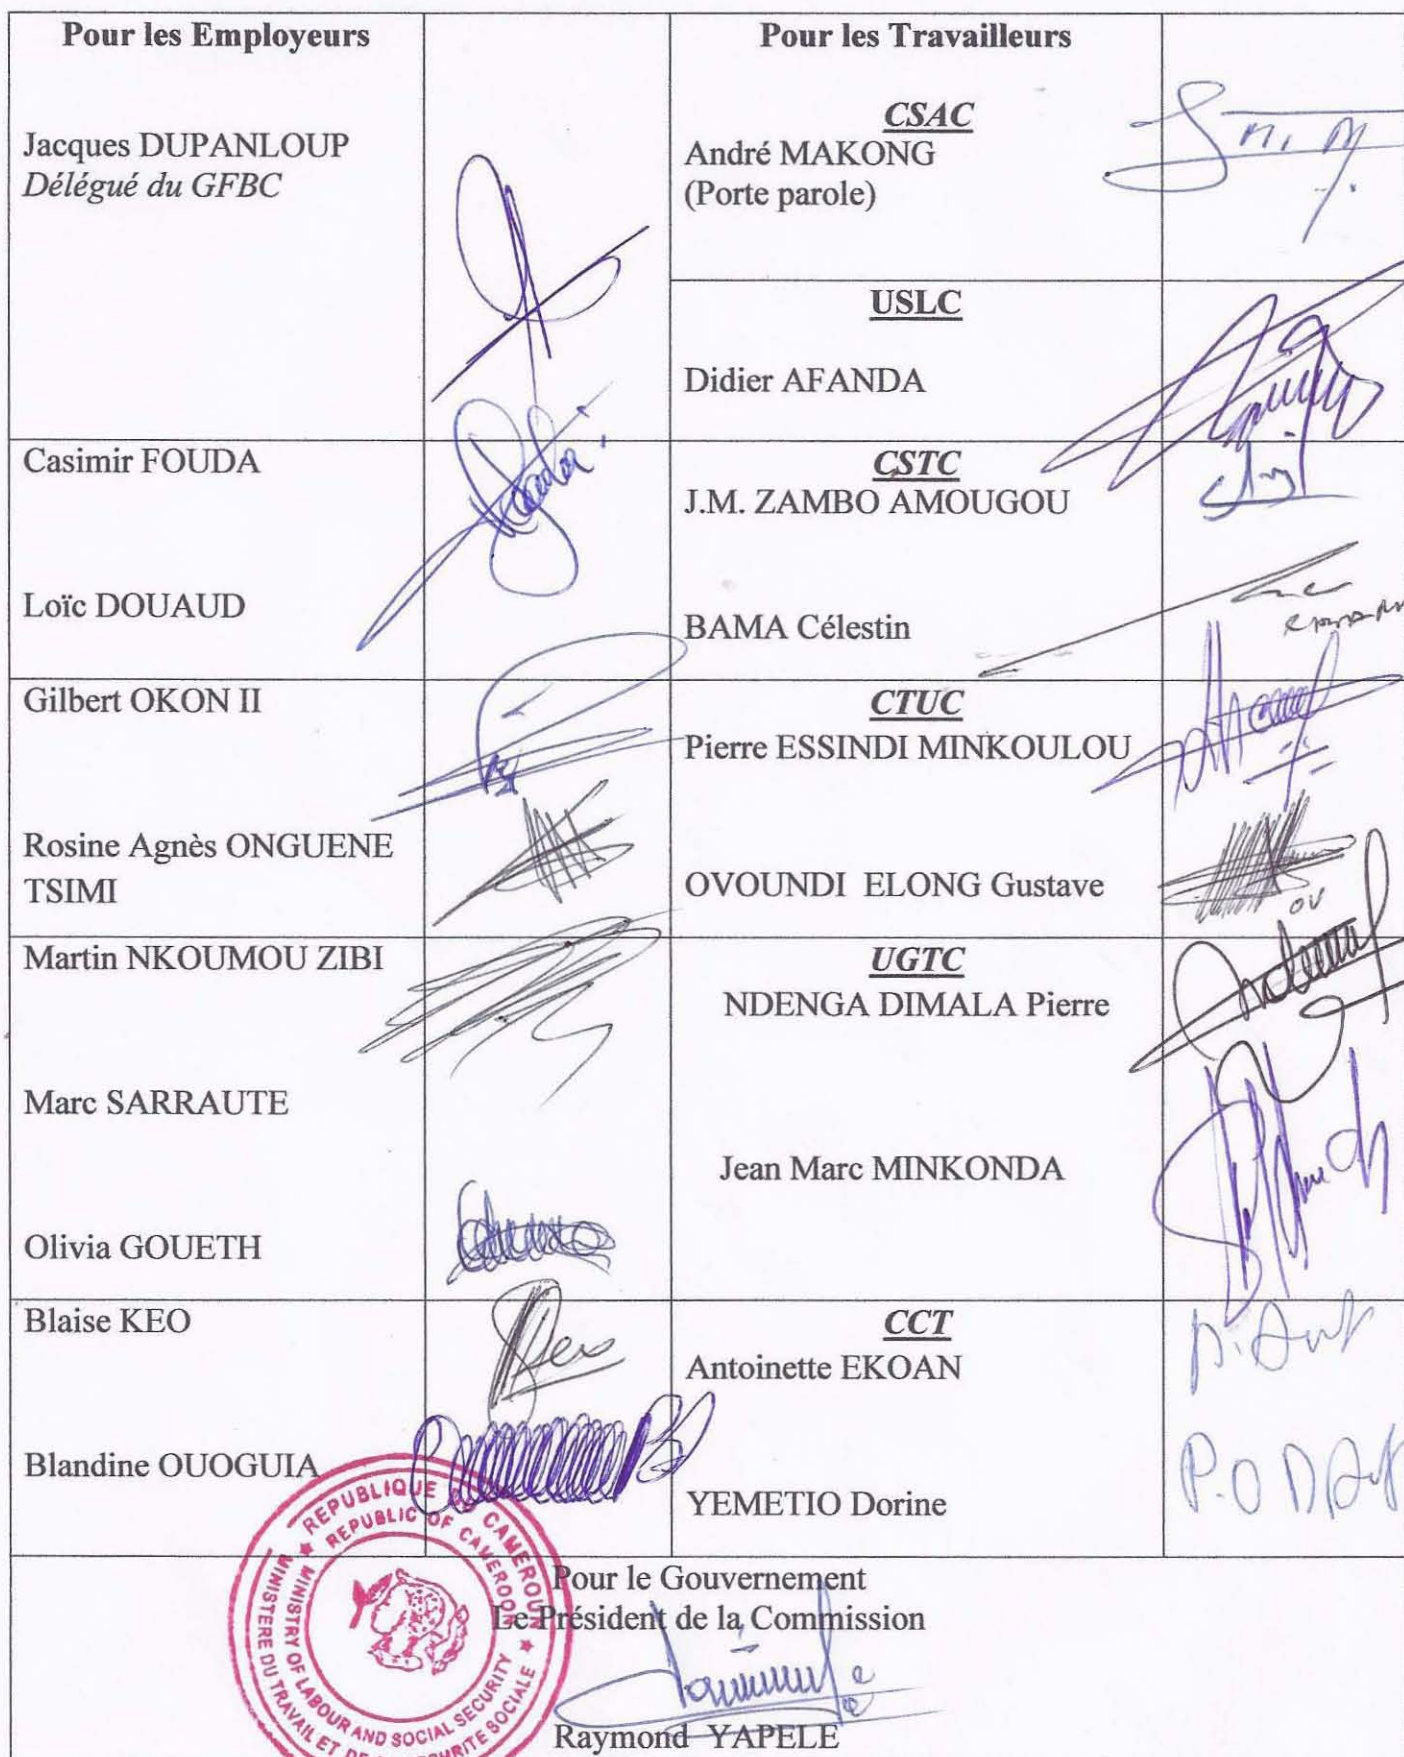 Pour les Employeurs
Jacques DUPANLOUP
Délégué du GFBC
Pour les Travailleurs
CSAC
André MAKONG
(Porte parole)
USLC
Didier AFANDA
Casimir FOUDA
Loïc DOUAUD
CSTC
J.M. ZAMBO AMOUGOU
BAMA Célestin
Gilbert OKON II
Rosine Agnès ONGUENE
TSIMI
CTUC
Pierre ESSINDI MINKOULOU
OVOUNDI ELONG Gustave
OV
Martin NKOUMOU ZIBI
Marc SARRAUTE
Olivia GOUETH
UGTC
NDENGA DIMALA Pierre
Jean Marc MINKONDA
Blaise KEO
Blandine OUOGUIA
CCT
Antoinette EKOAN
YEMETIO Dorine
P.O
Pour le Gouvernement
Le Président de la Commission
Raymond YAPELE
REPUBLIQUE DU CAMEROUN
REPUBLIC OF CAMEROON
MINISTRY OF LABOUR AND SOCIAL SECURITY
MINISTERE DU TRAVAIL ET DE SOCIALE